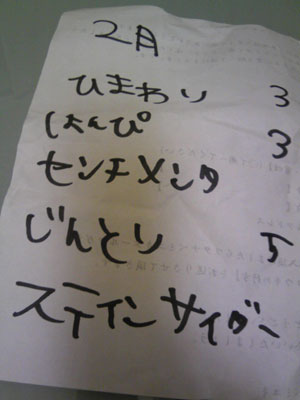 2月
ひまわり 3
はんぴ 3
センチメンタ
じんとり 5
ステインサイダー